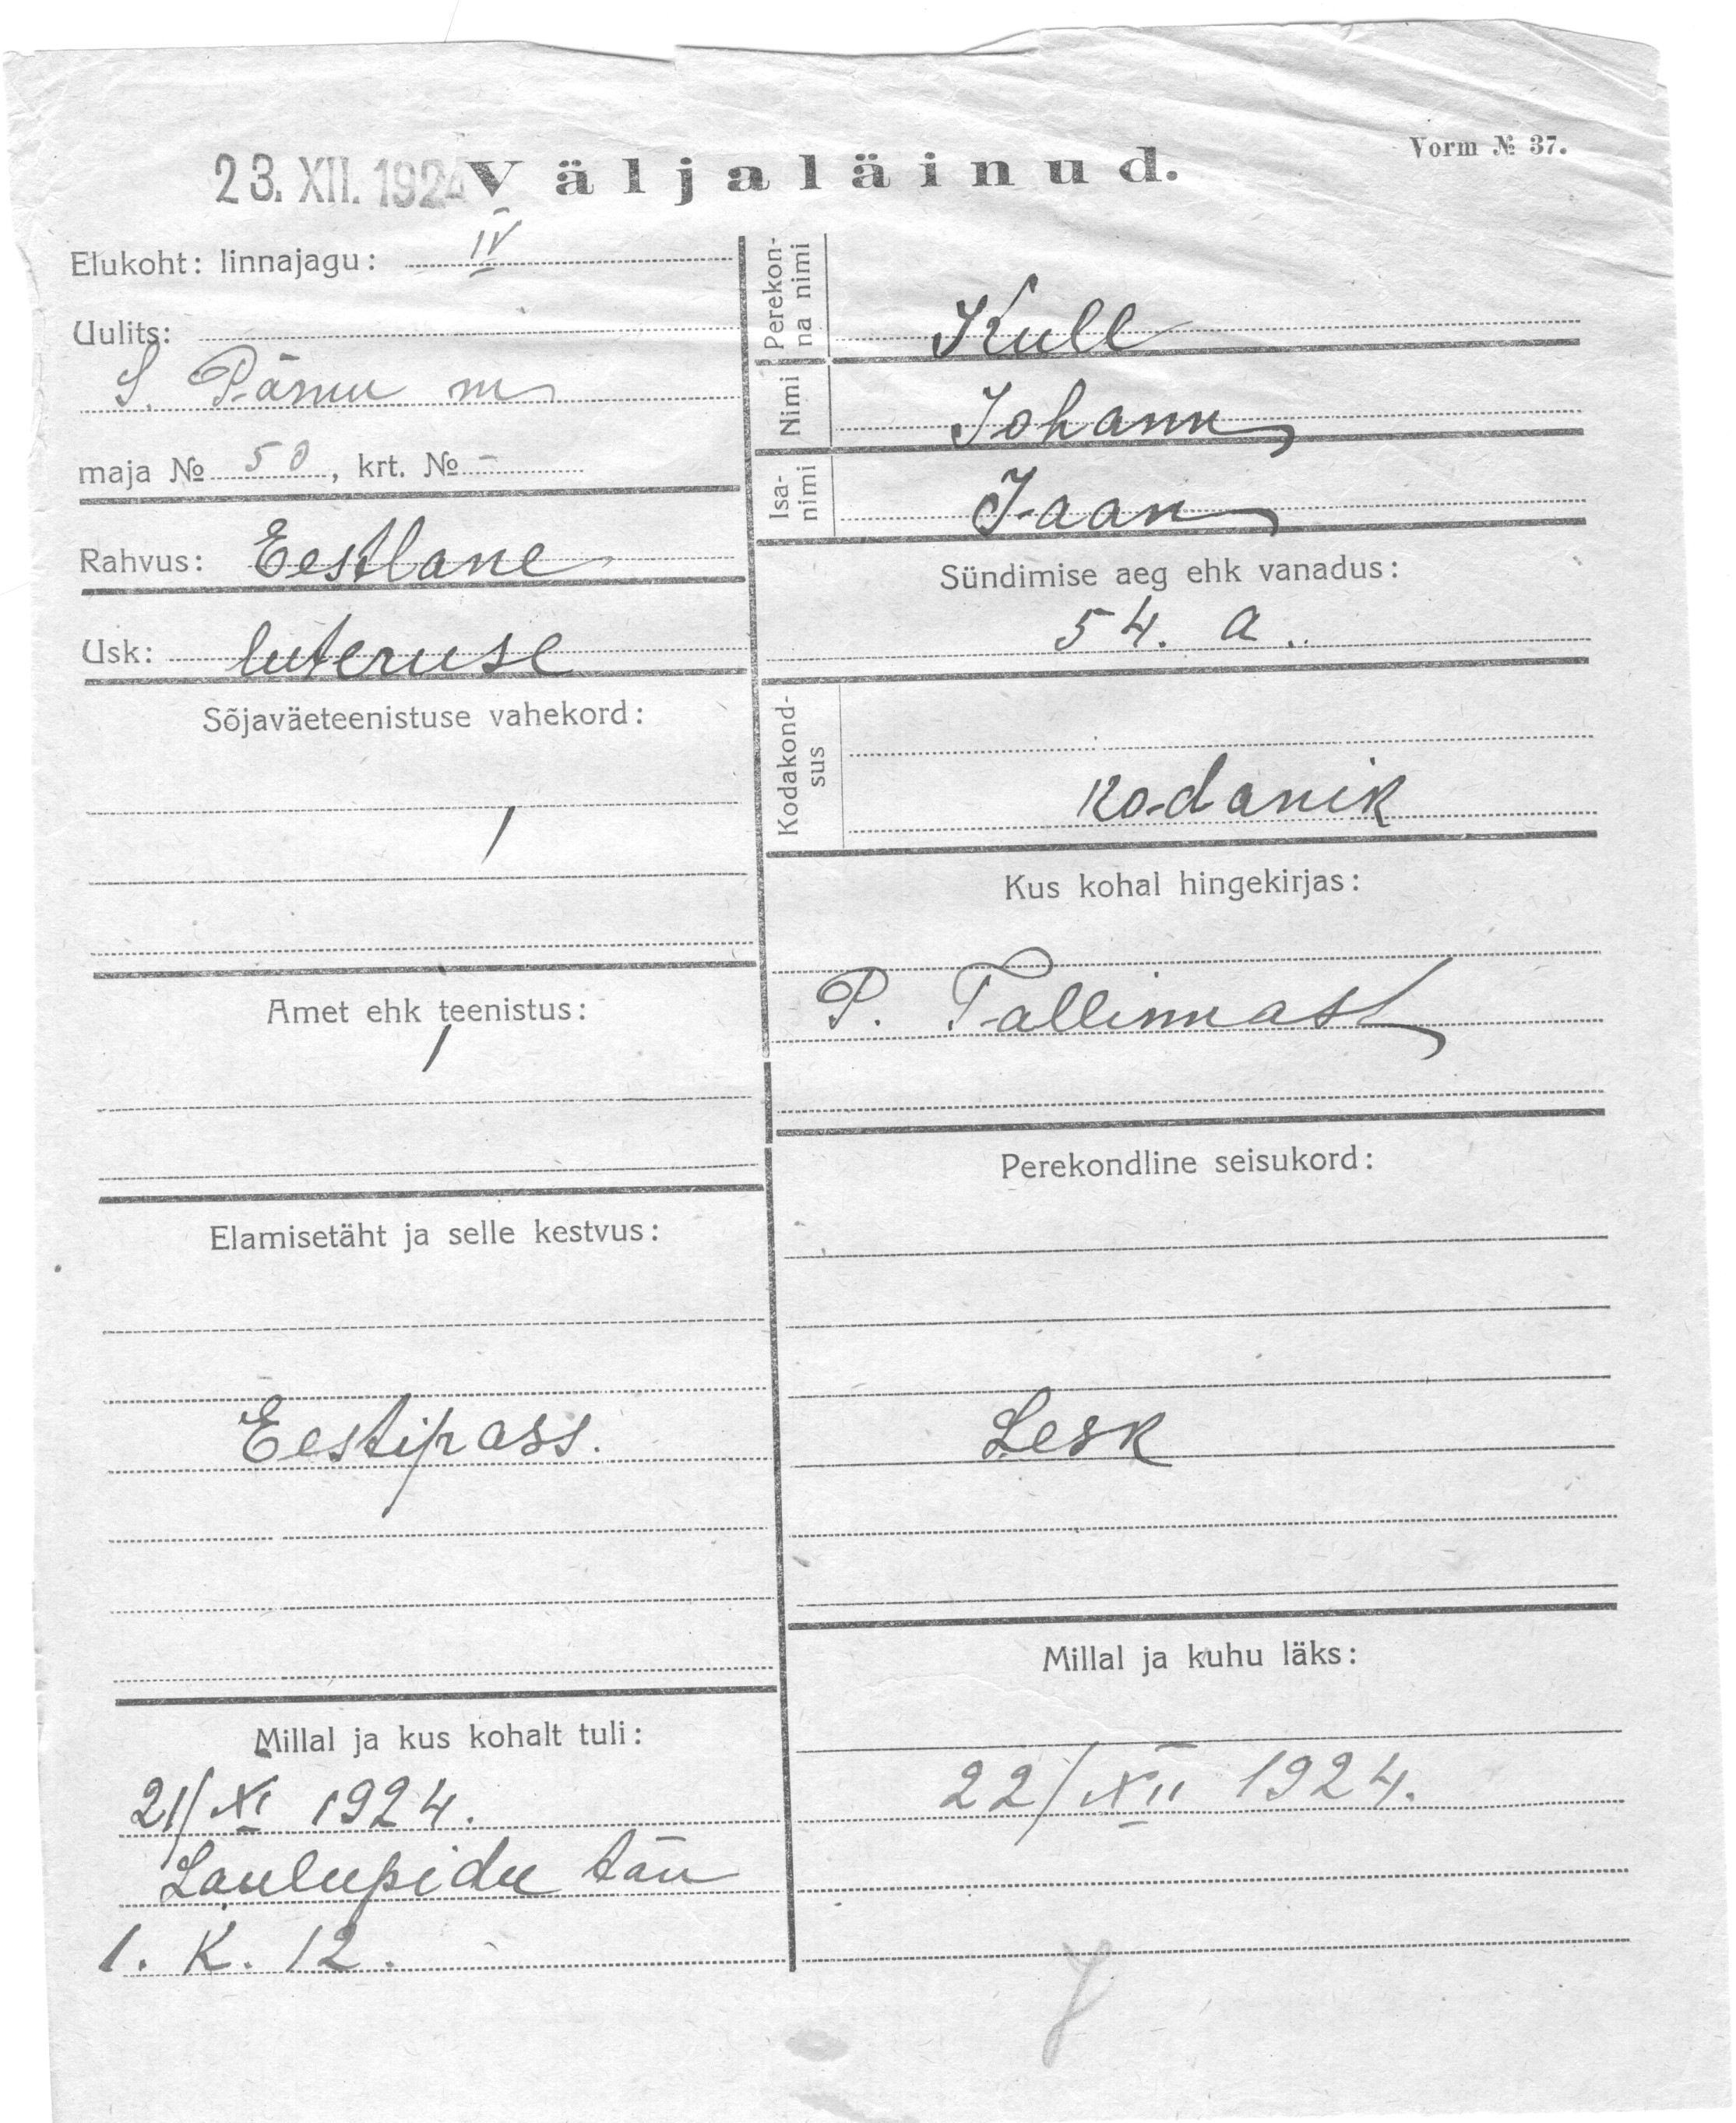 Vorm № 37.
23. XII. 1924
Väljaläinud.
Elukoht: linnajagu: IV
Uulits:
S. Pärnu m
maja № 50, krt. № -
Rahvus: Eestlane
Usk: luteruse
Sõjaväeteenistuse vahekord:
/
Amet ehk teenistus:
/
Elamisetäht ja selle kestvus:
Eestipass.
Millal ja kus kohalt tuli:
21/XI 1924.
Laulupidu tän
1. K. 12.
Perekon-
na nimi
Kull
Nimi
Johann
Isa-
nimi
Jaan
Sündimise aeg ehk vanadus:
54. a.
Kodakond-
sus
kodanik
Kus kohal hingekirjas:
P. Tallinnast
Perekondline seisukord:
Lesk
Millal ja kuhu läks:
22/XII 1924.